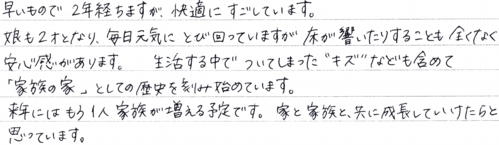 早いもので 2年経ちますが、快適に すごしています。
娘も2才となり、毎日元気に とび回っていますが 床が響いたりすることも 全くなく
安心感があります。 生活する中で ついてしまった“キズ”なども含めて
「家族の家」としての歴史を刻み始めています。
来年には もう1人 家族が増える予定です。 家と家族と、共に成長していけたらと
思っています。